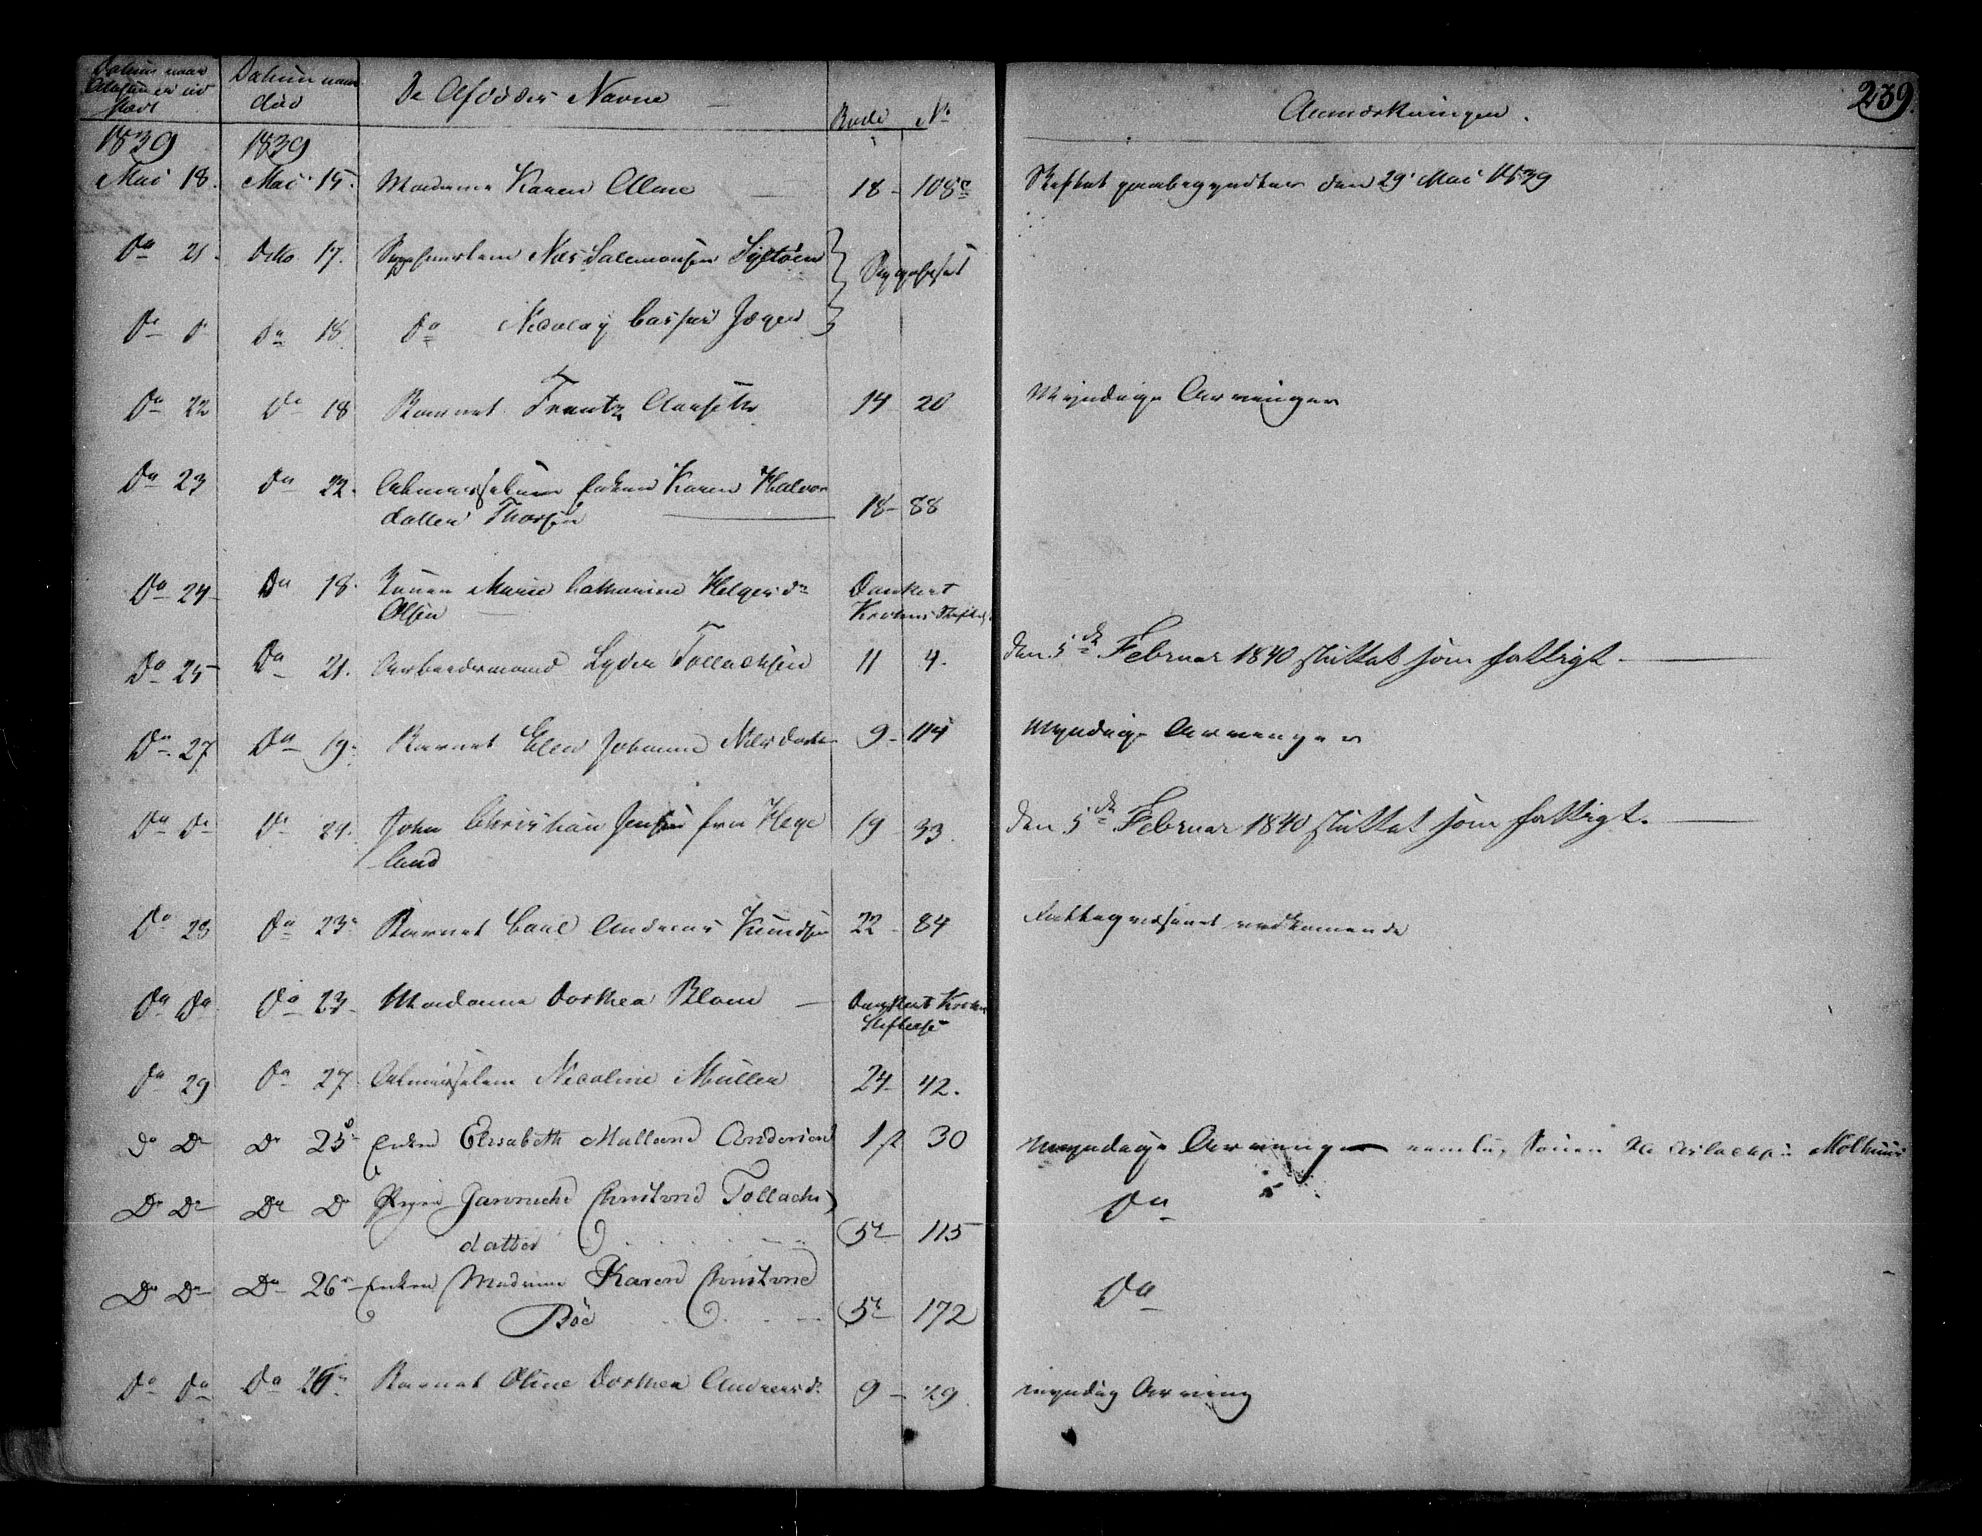 Datum naar
Datum naar
død
De Afdødes Navne
Rode No
Anmærkninger.
239
1839 1839
Mai 18. Mai 15. Madame Karen 18 - 108c Skiftet paabegyndtes den 29 Mai 1839
Do 21. Ditto 17. Niels Salomonsen
Do Do Do 18 Do Nicolay Casper
Do 22 Do 18 Barnet Frantz 14 20 Myndige Arvinger
Do 23 Do 22. Almisselem Enken Karen Halvor
datter Thorsen 18 - 88
Do 24 Do 18. Marie Cathrine Helgesdr
Olsen Dankert
Krohns Stiftelse
Do 25 Do 21. Arbeidsmand Lyder Tollachsen 11 4. den 5de Februar 1840 sluttet som fattigt.
Do 27 Do 19. Barnet Elen Johanne Nilsdatter 9 - 114 Myndige Arvinger
Do Do Do 21. John Christian Jensen fra Hege
land 19 33. den 5de Februar 1840 sluttet som fattigt.
Do 28 Do 23. Barnet Carl Andreas Knudsen 22 - 84 Fattigvæsenet vedkomende
Do Do Do 23. Madame Dorthea Blom Dankert Krohns
Stiftelse
Do 29 Do 27. Almisselem Nicoline Müller 24 - 42.
Do Do Do 25 Enken Elisabeth 30 Myndige Arvinger nemlig Sønen
Do Do Do Do Pigen Christine Tollachs
datter 5te 115 Do
Do Do Do 26 Enken Madame Karen Christine
Böe 5te 172 Do
Do Do Do 26 Barnet Oline Dorthea Andreasdr 9 - 29. myndig Arving